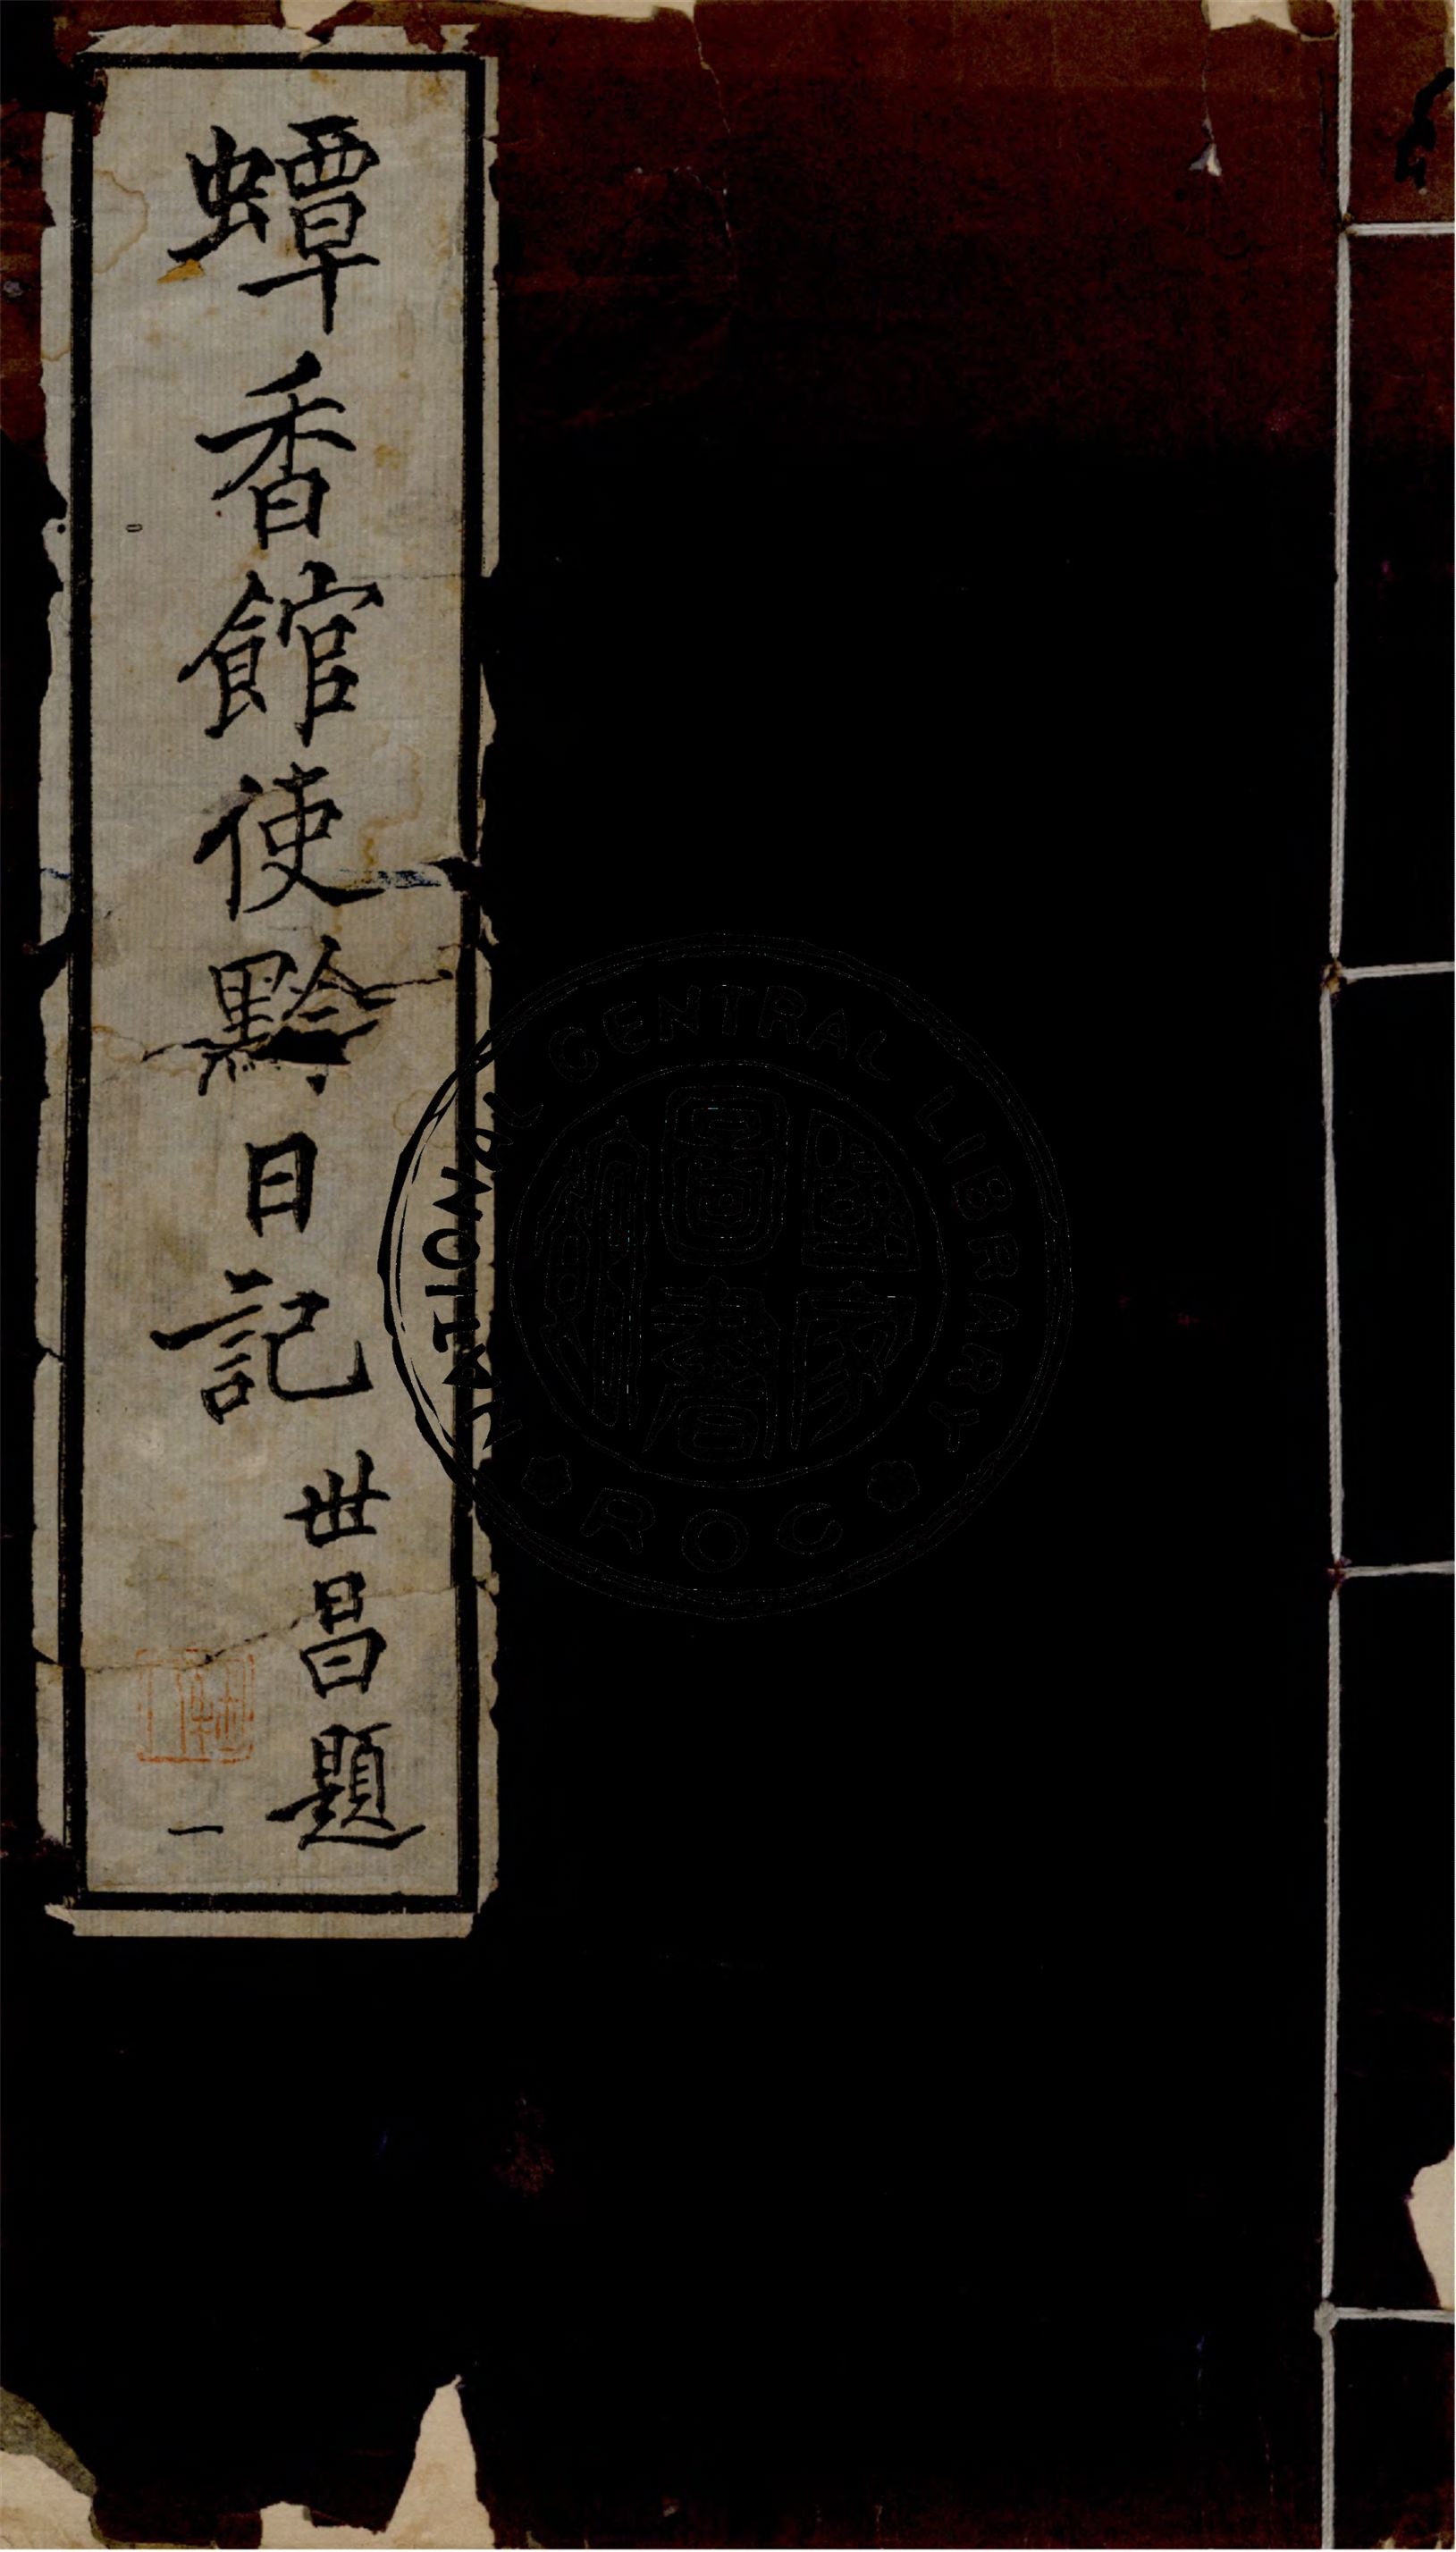 蟫香館使黔日記
世昌題
一
NATIONAL CENTRAL LIBRARY
ROC
國家圖書館